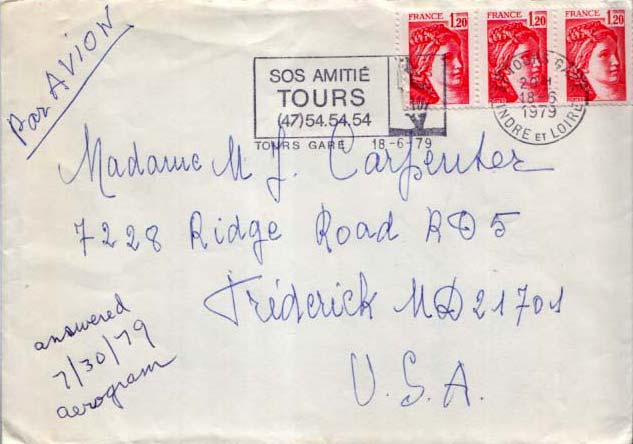 par AVION
FRANCE 1,20
FRANCE 1,20
FRANCE 1,20
SOS AMITIÉ
TOURS
(47) 54.54.54
TOURS GARE 18-6-79
18-6
1979
INDRE ET LOIRE
Madame M J. Carpenter
7228 Ridge Road RD5
Fréderick MD 21701
U.S.A.
answered
7/30/79
aerogram